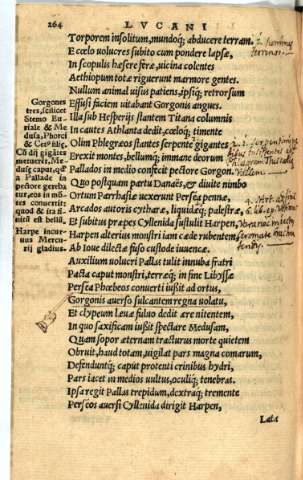 264 LVCANI
Torporem insolitum, mundoq; abducere terram.
E cœlo volucres subito cum pondere lapsæ,
In scopulis hæsere feræ, uicina colentes
Aethiopum totæ riguerunt marmore gentes.
Nullum animal uisus patiens, ipsiq; retrorsum
Effusi faciem uitabant Gorgonis angues.
Illa sub Hesperijs stantem Titana columnis
In cautes Athlanta dedit, cœloq; timente
Olim Phlegræos stantes serpente gigantes
Erexit montes, bellumq; immane deorum
Pallados in medio confecit pectore Gorgon.
Quo postquam partu Danaës, & diuite nimbo
Ortum Parrhasiæ uexerunt Persea pennæ,
Arcados autoris cytharæ, liquidæq; palestræ,
Et subitus præpes Cyllenida sustulit Harpen,
Harpen alterius monstri iam cæde rubentem
Ab Ioue dilectæ fuso custode iuuencæ.
Auxilium uolucri Pallas tulit innuba fratri
Pacta caput monstri, terræq; in fine Libyssæ
Persea Phœbeos conuerti iußit ad ortus,
Gorgonis auerso sulcantem regna uolatu,
Et clypeum læua fuluo dedit ære nitentem,
In quo saxificam iußit spectare Medusam,
Quam sopor æternam tracturus morte quietem
Obruit, haud totam, uigilat pars magna comarum,
Defenduntq; caput protenti crinibus hydri,
Pars iacet in medios uultus, oculiq; tenebras.
Ipsa regit Pallas trepidum, dextraq; tremente
Perseos auersi Cyllenida dirigit Harpen,
Lata
Gorgones
tres, scilicet
Steno Eu
riale & Me
dusa, Phorci
& Cet° filię,
metueret, Me-
dusę caput, qđ
a Pallade in
pectore gereba
tur, eos in mō-
tes conuertit:
nisi est belli.
Harpe incur
uus Mercu-
rij gladius.